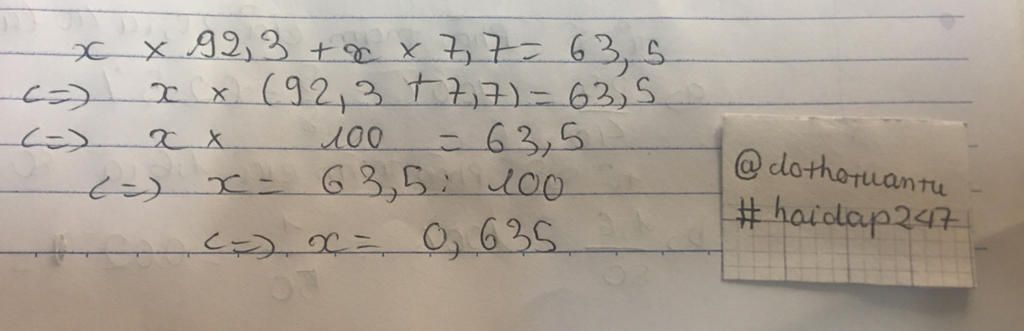 x × 92,3 + x × 7,7 = 63,5
<=> x × (92,3 + 7,7) = 63,5
<=> x × 100 = 63,5
<=> x = 63,5 : 100
<=> x = 0,635
@dothotuantu
#hoidap247